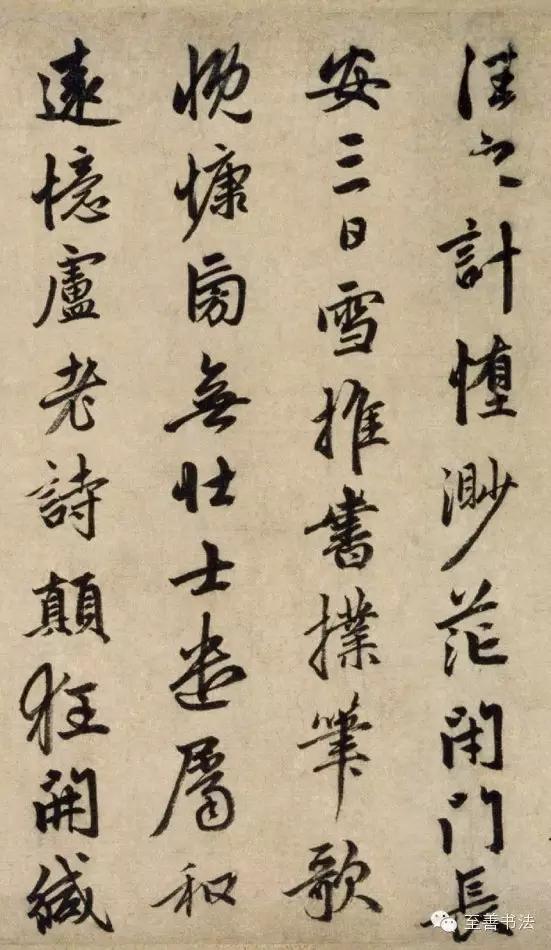 往之計墮渺茫閉門長
安三日雪推書撲筆歌
慨慷旁無壯士遣屬和
遠憶盧老詩顛狂開緘
至善书法